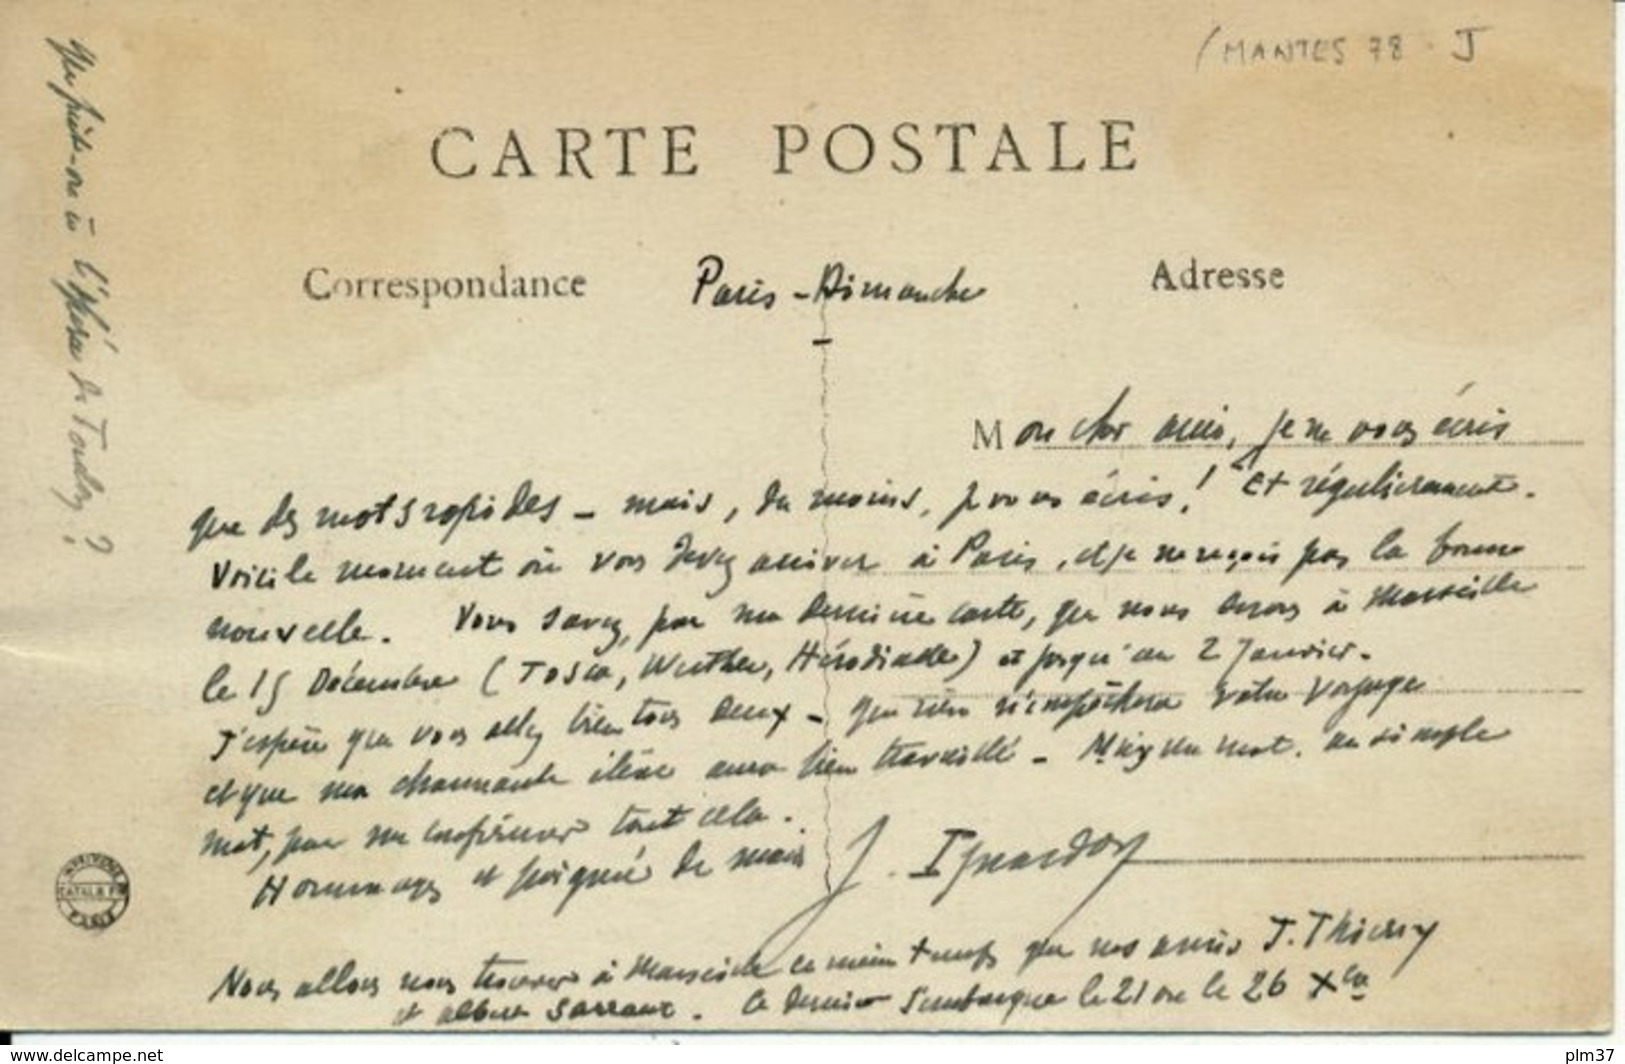 (MANTES 78 - J
CARTE POSTALE
Correspondance
Paris - Dimanche
Adresse
Mon cher ami, je ne vous écris
que des mots rapides - mais, du moins, je vous écris! Et régulièrement.
Voici le moment où vous devez arriver à Paris, et je ne reçois pas la bonne
nouvelle. Vous savez, par ma dernière carte, que nous serons à Marseille
le 15 Décembre (Tosca, Werther, Hérodiade) et jusqu'au 2 Janvier.
J'espère que vous allez bien tous deux - que rien n'empêchera votre voyage
et que ma charmante élève aura bien travaillé - un mot, un simple
mot, pour me confirmer tout cela.
Hommages et poignée de main
J.
Nous allons nous trouver à Marseille en même temps que nos amis J. Thierry
et Albert Sarraut. Ce dernier s'embarque le 21 ou le 26 Xbre
l'Opéra de ?
PARIS
www.delcampe.net
plm37